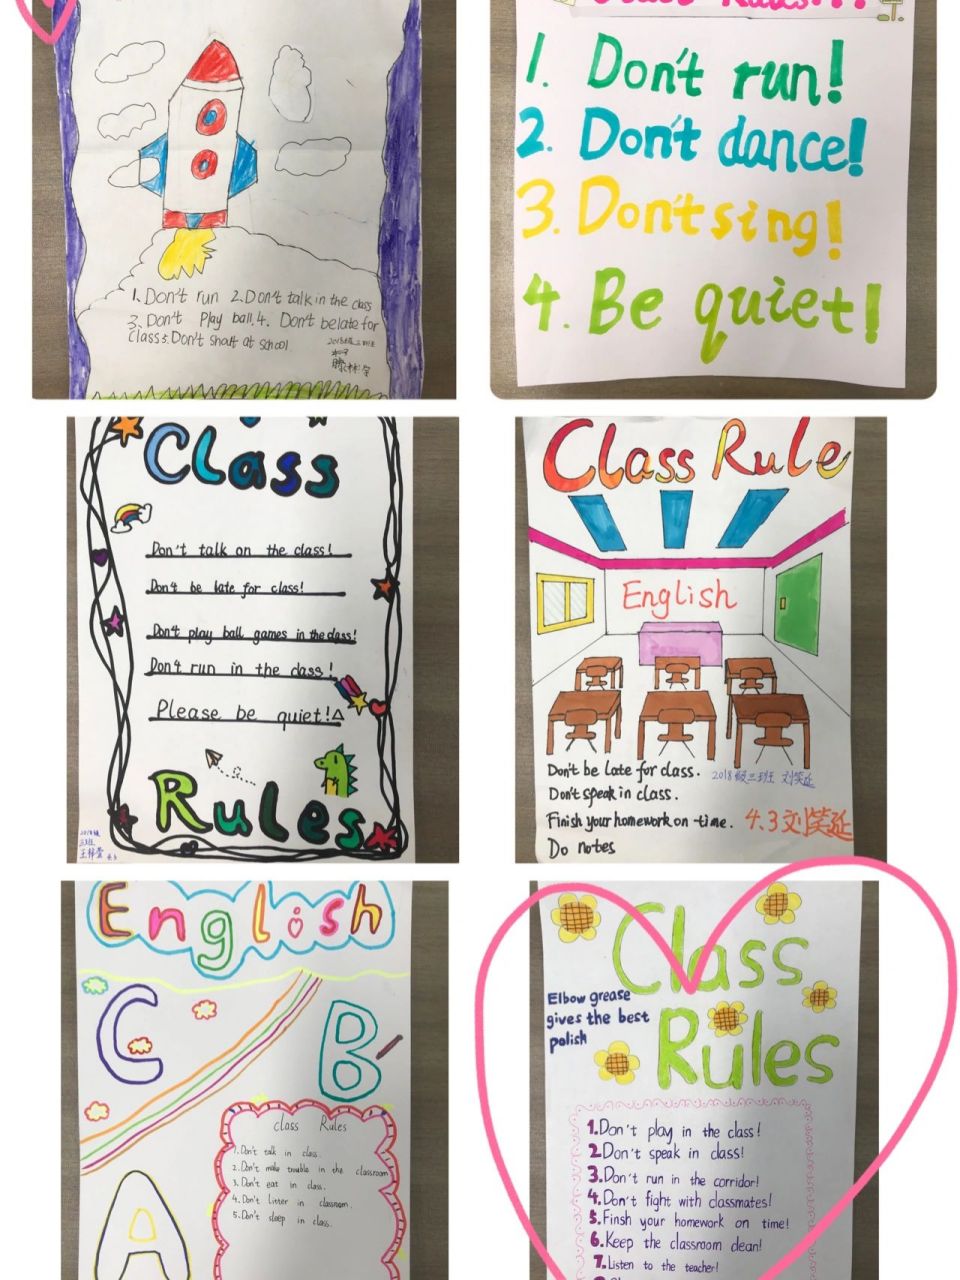 1. Don't run 2. Don't talk in the class
3. Don't Play ball. 4. Don't be late for
class 5. Don't shatt at school
2018级三班
Rules...
1. Don't run!
2. Don't dance!
3. Don't sing!
4. Be quiet!
Class
Don't talk on the class!
Don't be late for class!
Don't play ball games in the class!
Don't run in the class!
Please be quiet!
Rules
2018级
三班
4.3
Class Rule
English
Don't be late for class. 2018级三班 刘笑延
Don't speak in class.
Finish your homework on time. 4.3 刘笑延
Do notes
English
C
B
A
class Rules
1. Don't talk in class.
2. Don't make trouble in the classroom
3. Don't eat in class.
4. Don't litter in classroom.
5. Don't sleep in class.
Class
Rules
Elbow grease
gives the best
polish
1. Don't play in the class!
2. Don't speak in class!
3. Don't run in the corridor!
4. Don't fight with classmates!
5. Finsh your homework on time!
6. Keep the classroom clean!
7. Listen to the teacher!